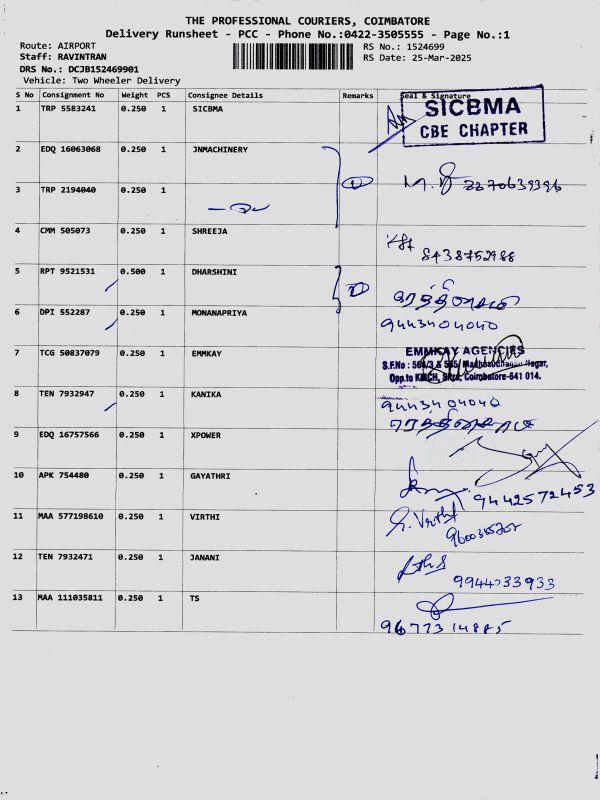 THE PROFESSIONAL COURIERS, COIMBATORE
Delivery Runsheet - PCC - Phone No.:0422-3505555 - Page No.:1
Route: AIRPORT
Staff: RAVINTRAN
DRS No.: DCJB152469901
Vehicle: Two Wheeler Delivery
RS No.: 1524699
RS Date: 25-Mar-2025
S No Consignment No Weight PCS Consignee Details Remarks Seal & Signature
1 TRP 5583241 0.250 1 SICBMA
SICBMA
CBE CHAPTER
2 EDQ 16063068 0.250 1 JNMACHINERY
3 TRP 2194040 0.250 1
4 CMM 505073 0.250 1 SHREEJA
8438752988
5 RPT 9521531 0.500 1 DHARSHINI
6 DPI 552287 0.250 1 MONANAPRIYA
9443404040
7 TCG 50837079 0.250 1 EMMKAY
EMMKAY AGENCIES
Opp.to KMCH, Coimbatore-641 014.
8 TEN 7932947 0.250 1 KANIKA
9443404040
9 EDQ 16757566 0.250 1 XPOWER
10 APK 754480 0.250 1 GAYATHRI
9442572453
11 MAA 577198610 0.250 1 VIRTHI
G. Virthi
12 TEN 7932471 0.250 1 JANANI
9944033933
13 MAA 111035811 0.250 1 TS
9677314885